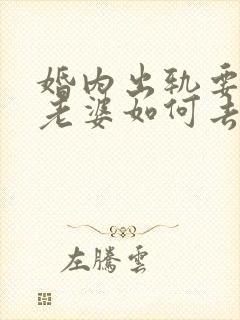 婚内出轨要
老婆如何去
左腾云